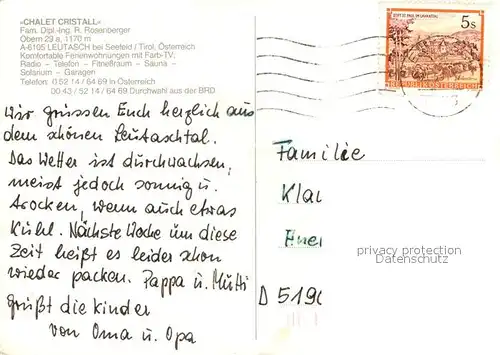 »CHALET CRISTALL«
Fam. Dipl.-Ing. R. Rosenberger
Obern 29 a, 1170 m
A-6105 LEUTASCH bei Seefeld / Tirol, Österreich
Komfortable Ferienwohnungen mit Farb-TV,
Radio – Telefon – Fitneßraum – Sauna –
Solarium – Garagen
Telefon: 0 52 14 / 64 69 in Österreich
00 43 / 52 14 / 64 69 Durchwahl aus der BRD
Wir grüssen Euch herzlich aus
dem schönen Leutaschtal.
Das Wetter ist durchwachsen,
meist jedoch sonnig u.
trocken, wenn auch etwas
kühl. Nächste Woche um diese
Zeit heißt es leider schon
wieder packen. Pappa u. Mutti
grüßt die Kinder
von Oma u. Opa
STIFT ST. PAUL IM LAVANTTAL
5s
REPUBLIK ÖSTERREICH
Familie
Klau
D 5190
privacy protection
Datenschutz